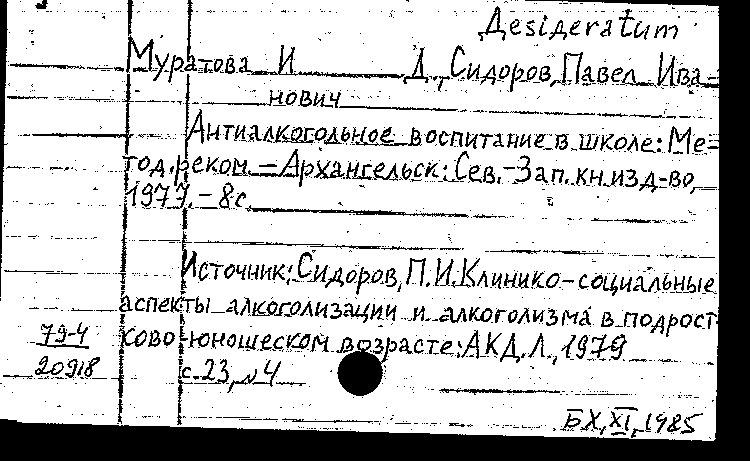 Desideratum
Муратова И Д., Сидоров, Павел Ива-
нович
Антиалкогольное воспитание в школе: Ме-
тод. реком. — Архангельск: Сев.-Зап. кн. изд-во,
1977. – 8 с.
Источник: Сидоров, П. И. Клинико-социальные
аспекты алкоголизации и алкоголизма в подрост-
79-4 ково-юношеском возрасте: АКД, Л., 1979
20918 с. 23, №4
БХ, XI, 1985